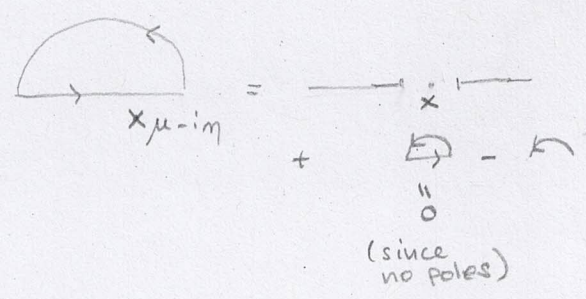 = x
x μ-iη
+ -
=
0
(since
no poles)